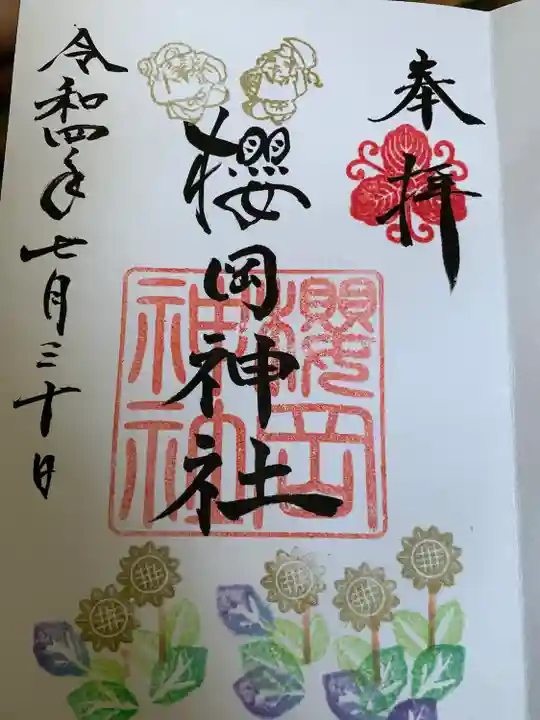 奉拝
櫻岡神社
櫻岡神社
令和四年七月三十日